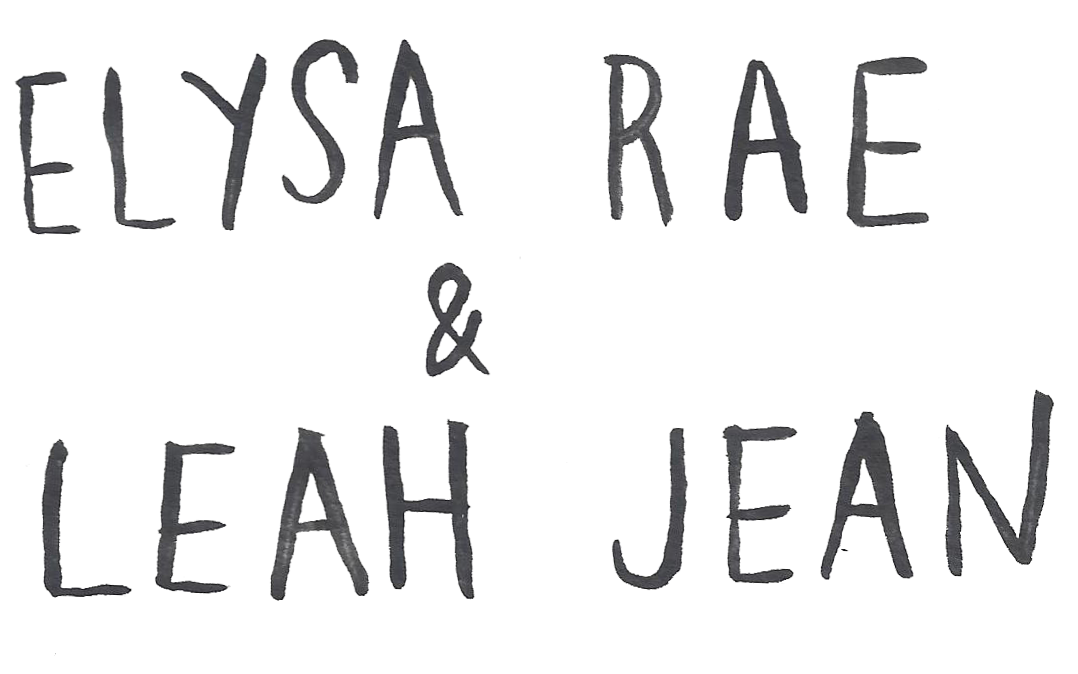 ELYSA RAE
&
LEAH JEAN